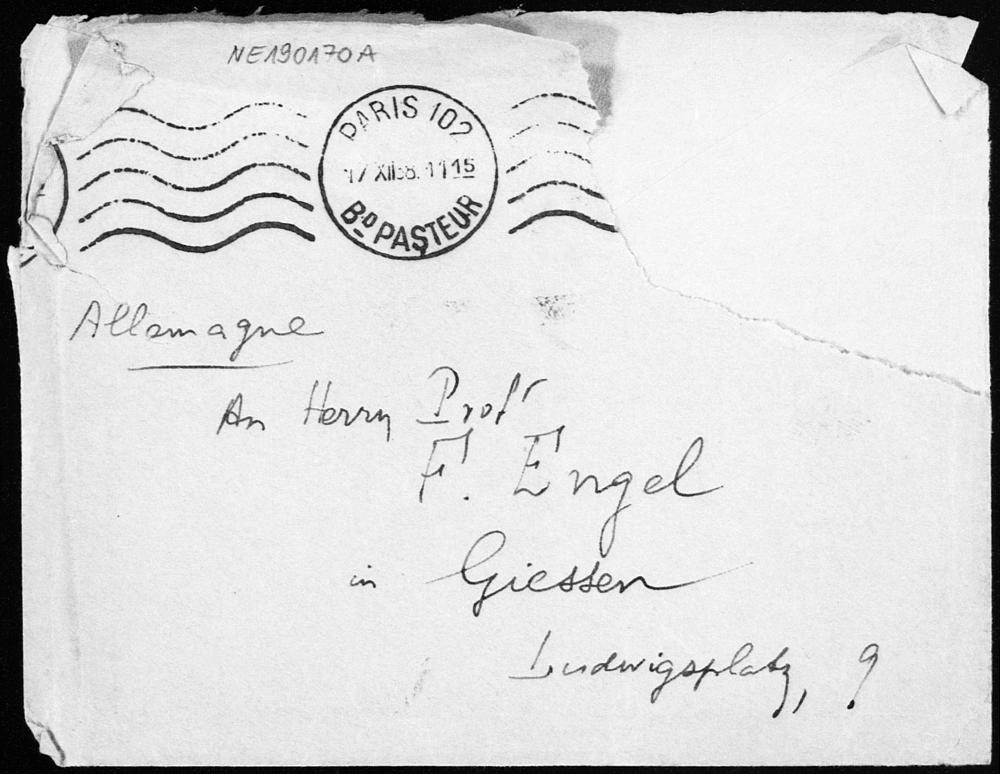 NE190170A
PARIS 102
17 XII 38. 1115
Bᴰ PASTEUR
Allemagne
An Herrn Profʳ
F. Engel
in Giessen
Ludwigsplatz, 9